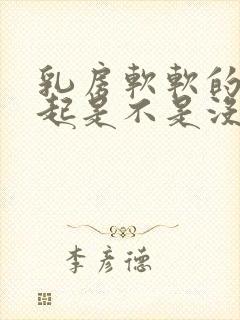 乳房軟軟的
起是不是沒
李彥德